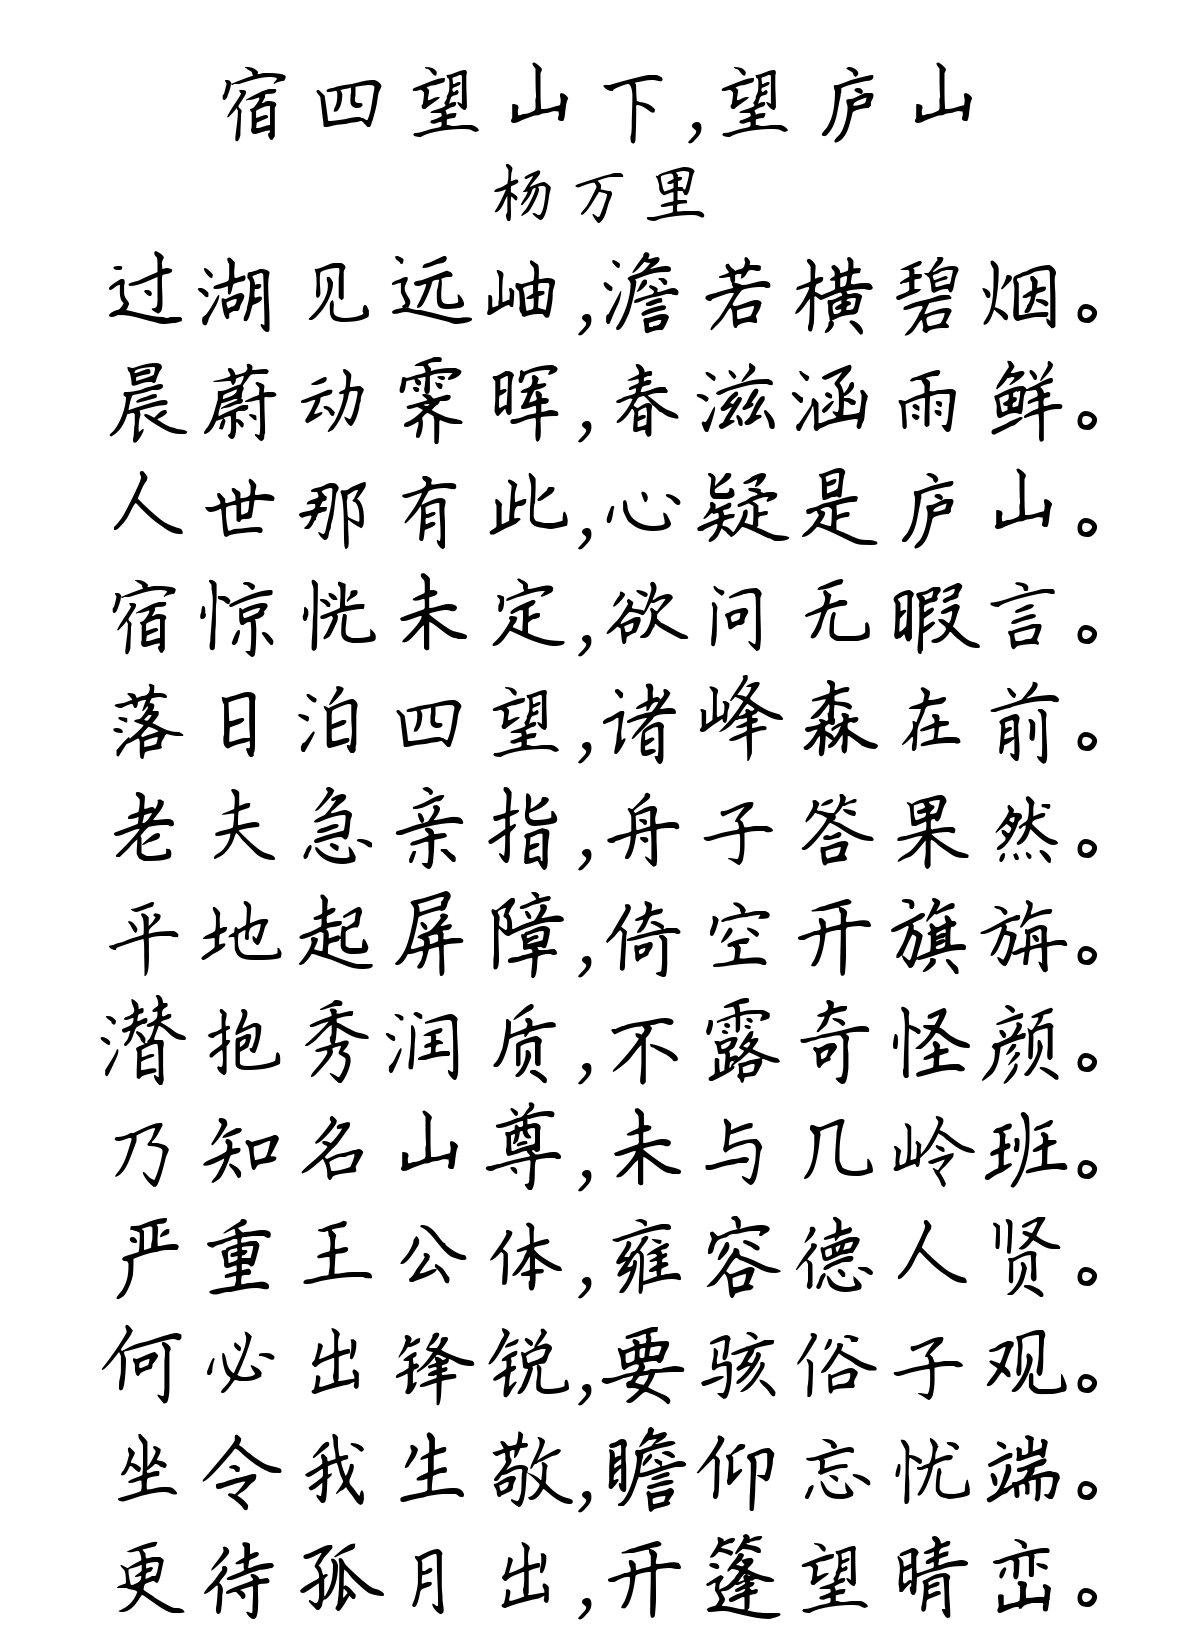 宿四望山下,望庐山
杨万里
过湖见远岫,澹若横碧烟。
晨蔚动霁晖,春滋涵雨鲜。
人世那有此,心疑是庐山。
宿惊恍未定,欲问无暇言。
落日泊四望,诸峰森在前。
老夫急亲指,舟子答果然。
平地起屏障,倚空开旗旃。
潜抱秀润质,不露奇怪颜。
乃知名山尊,未与几岭班。
严重王公体,雍容德人贤。
何必出锋锐,要骇俗子观。
坐令我生敬,瞻仰忘忧端。
更待孤月出,开篷望晴峦。